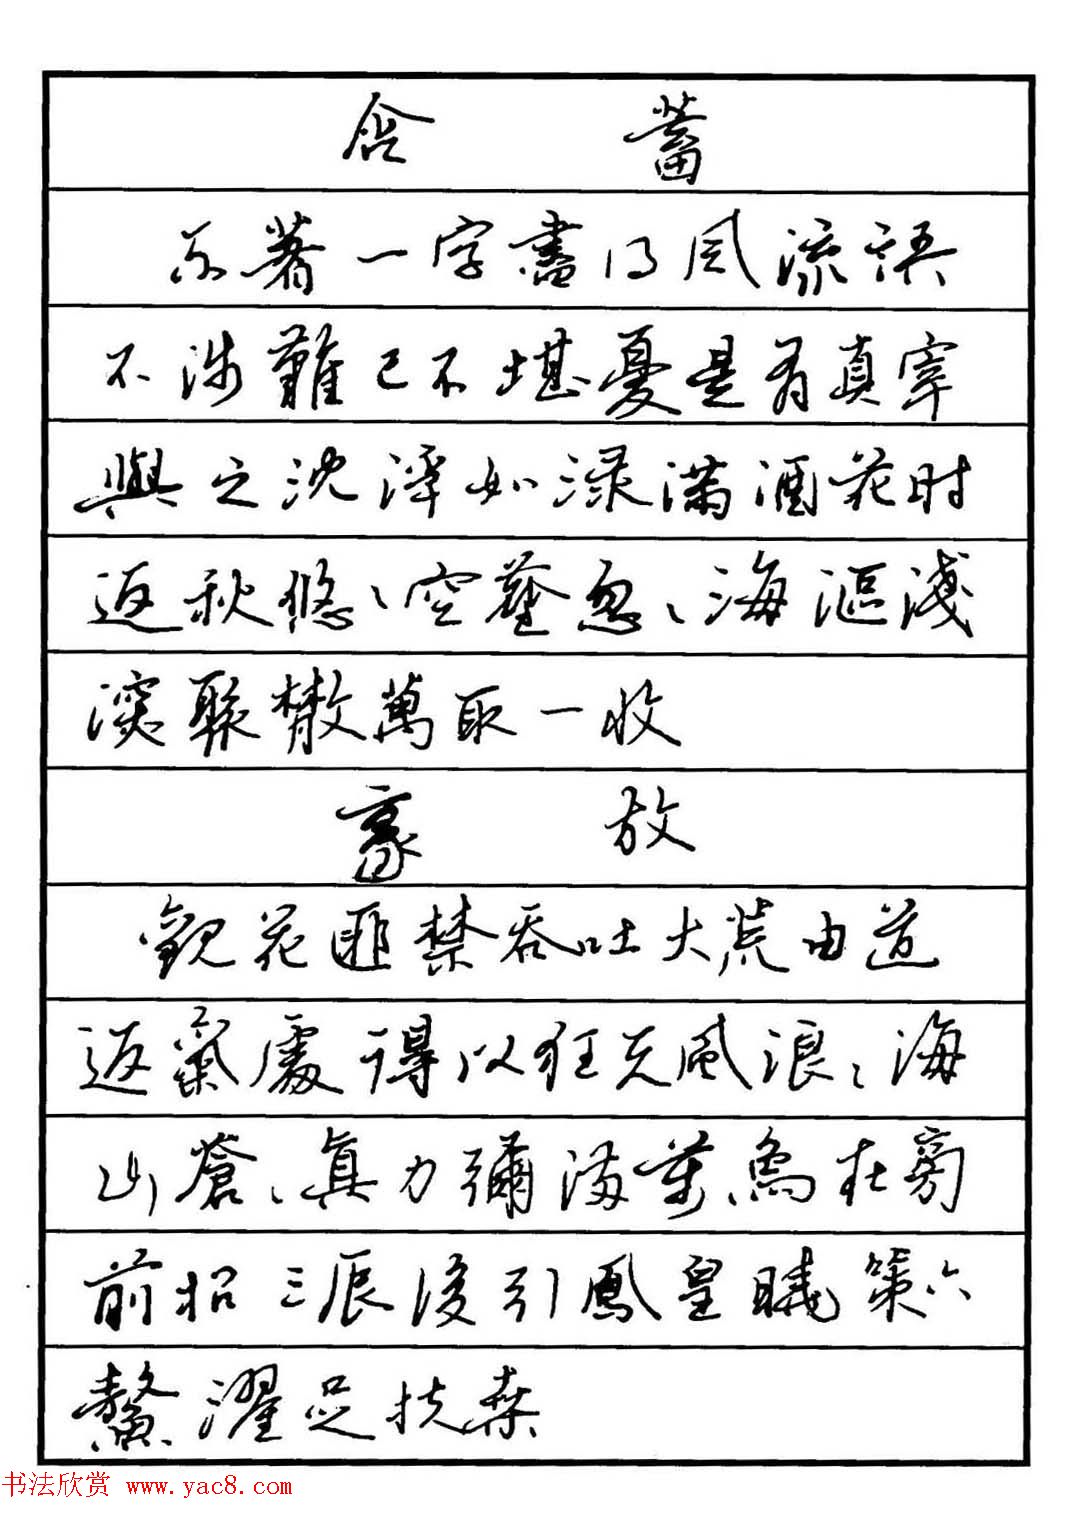 含蓄
不著一字盡得風流語
不涉難已不堪憂是有真宰
與之沈浮如淥滿酒花时
返秋悠〻空塵忽〻海漚淺
深聚散萬取一收
豪放
觀花匪禁吞吐大荒由道
返氣處得以狂无風浪〻海
山蒼〻真力彌滿萬象在旁
前招三辰後引鳳皇曉策六
鰲濯足扶桑
书法欣赏 www.yac8.com